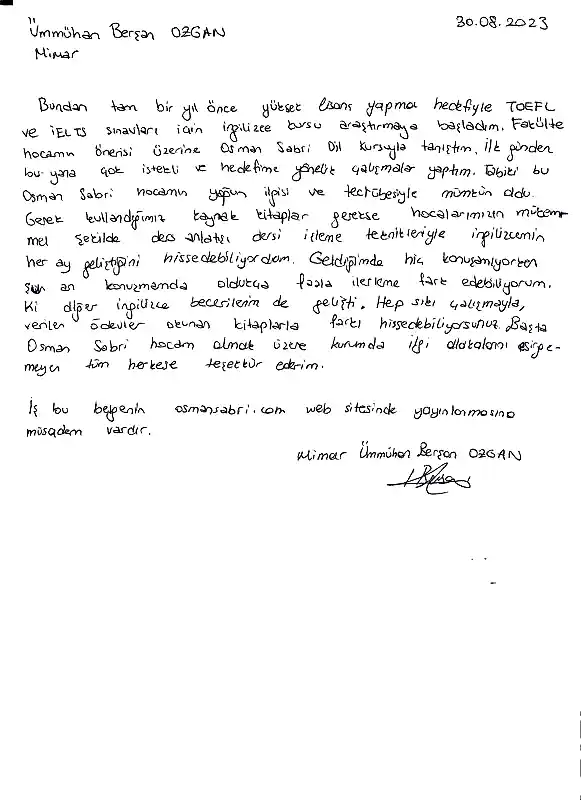 Ümmühan Berşan OZGAN
30.08.2023
Mimar
Bundan tam bir yıl önce yüksek lisans yapma hedefiyle TOEFL
ve IELTS sınavları için ingilizce kursu araştırmaya başladım. Fakülte
hocamın önerisi üzerine Osman Sabri Dil kursuyla tanıştım. İlk günden
bu yana çok istekli ve hedefime yönelik çalışmalar yaptım. Tabiki bu
Osman Sabri hocamın yoğun ilgisi ve tecrübesiyle mümkün oldu.
Gerek kullandığımız kaynak kitaplar gerekse hocalarımızın mükem-
mel şekilde ders anlatışı dersi işleme teknikleriyle ingilizcemin
her ay geliştiğini hissedebiliyordum. Geldiğimde hiç konuşamıyorken
şuan an konuşmamda oldukça fazla ilerleme fark edebiliyorum.
Ki diğer ingilizce becerilerim de gelişti. Hep sıkı çalışmayla,
verilen ödevler okunan kitaplarla farkı hissedebiliyorsunuz. Başta
Osman Sabri hocam olmak üzere kurumda ilgi alakalarını esirge-
meyen tüm herkese teşekkür ederim.
İş bu belgenin osmansabri.com web sitesinde yayınlanmasına
müsadem vardır.
Mimar Ümmühan Berşan OZGAN